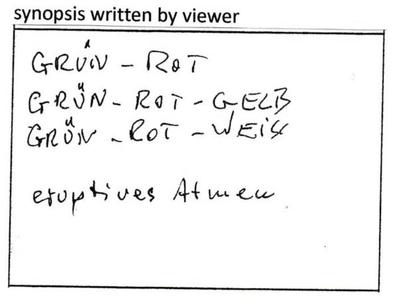 synopsis written by viewer
GRÜN - ROT
GRÜN - ROT - GELB
GRÜN - ROT - WEISS
eruptives Atmen